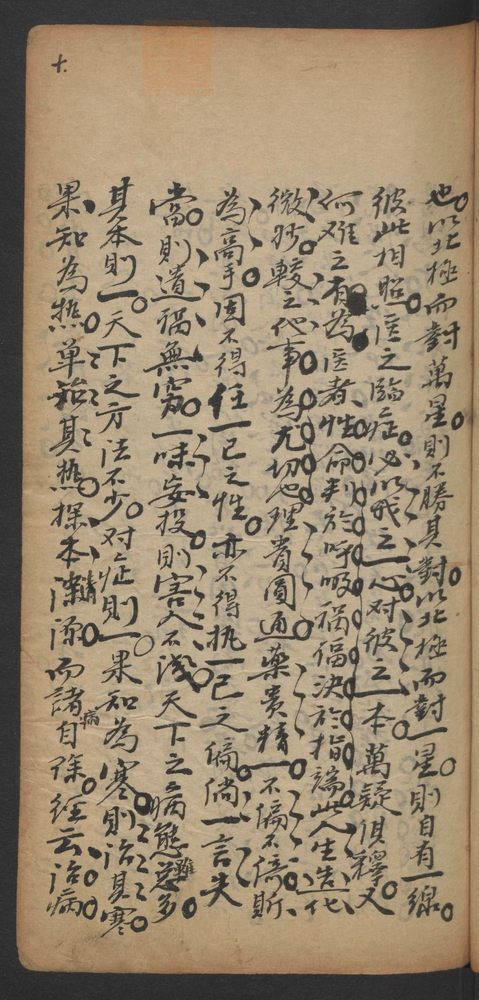 十
也以北極而對萬星則不勝其對以北極而對一星則自有一線
彼此相照医之臨症必以我之一心对彼之一本萬疑俱釋又
何难之有為医者性命判於呼吸禍福決於指端此人生造化
微妙較之他事為尤切也理貴圓通藥貴精一不偏不倚斯
為高手固不得任一己之性亦不得执一己之偏倘一言失
當則遺禍無窮一味妄投則害人不浅天下之病態雖多
其本則一天下之方法不少对症則一果知為寒則治其寒
果知為热单治其热探本清源而諸病自除经云治病